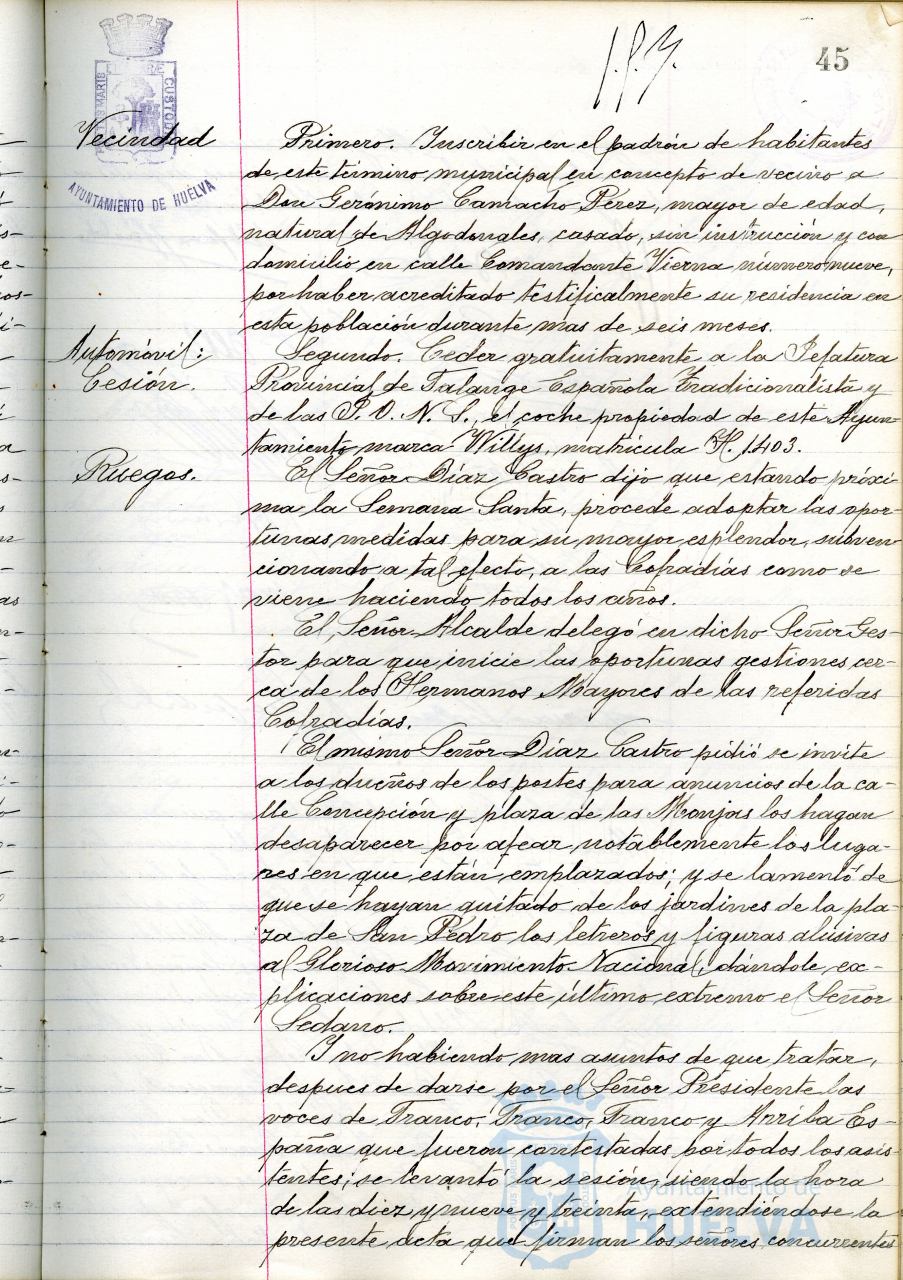 45
Vecindad
AYUNTAMIENTO DE HUELVA
Primero. Inscribir en el padrón de habitantes
de este término municipal en concepto de vecino a
Don Gerónimo Camacho Pérez, mayor de edad,
natural de Algodonales, casado, sin instrucción y con
domicilio en calle Comandante Vierna número nueve,
por haber acreditado testificalmente su residencia en
esta población durante mas de seis meses.
Automóvil:
Cesión.
Segundo. Ceder gratuitamente a la Jefatura
Provincial de Falange Española Tradicionalista y
de las J. O. N. S., el coche propiedad de este Ayun-
tamiento marca Willys, matrícula H. 1403.
Ruegos.
El Señor Díaz Castro dijo que estando próxi-
ma la Semana Santa, procede adoptar las opor-
tunas medidas para su mayor esplendor, subven
cionando a tal efecto, a las Cofradías como se
viene haciendo todos los años.
El Señor Alcalde delegó en dicho Señor Ges-
tor para que inicie las oportunas gestiones cer-
ca de los Hermanos Mayores de las referidas
Cofradías.
El mismo Señor Díaz Castro pidió se invite
a los dueños de los postes para anuncios de la ca-
lle Concepción y plaza de las Monjas los hagan
desaparecer por afear notablemente los luga-
res en que están emplazados; y se lamentó de
que se hayan quitado de los jardines de la pla-
za de San Pedro los letreros y figuras alusivas
al Glorioso Movimiento Nacional, dándole ex-
plicaciones sobre este último extremo el Señor
Sedano.
Y no habiendo mas asuntos de que tratar,
despues de darse por el Señor Presidente las
voces de Franco, Franco, Franco y Arriba Es-
paña que fueron contestadas por todos los asis-
tentes; se levantó la sesión, siendo la hora
de las diez y nueve y treinta, extendiendose la
presente acta que firman los señores concurrentes
Ayuntamiento de
HUELVA